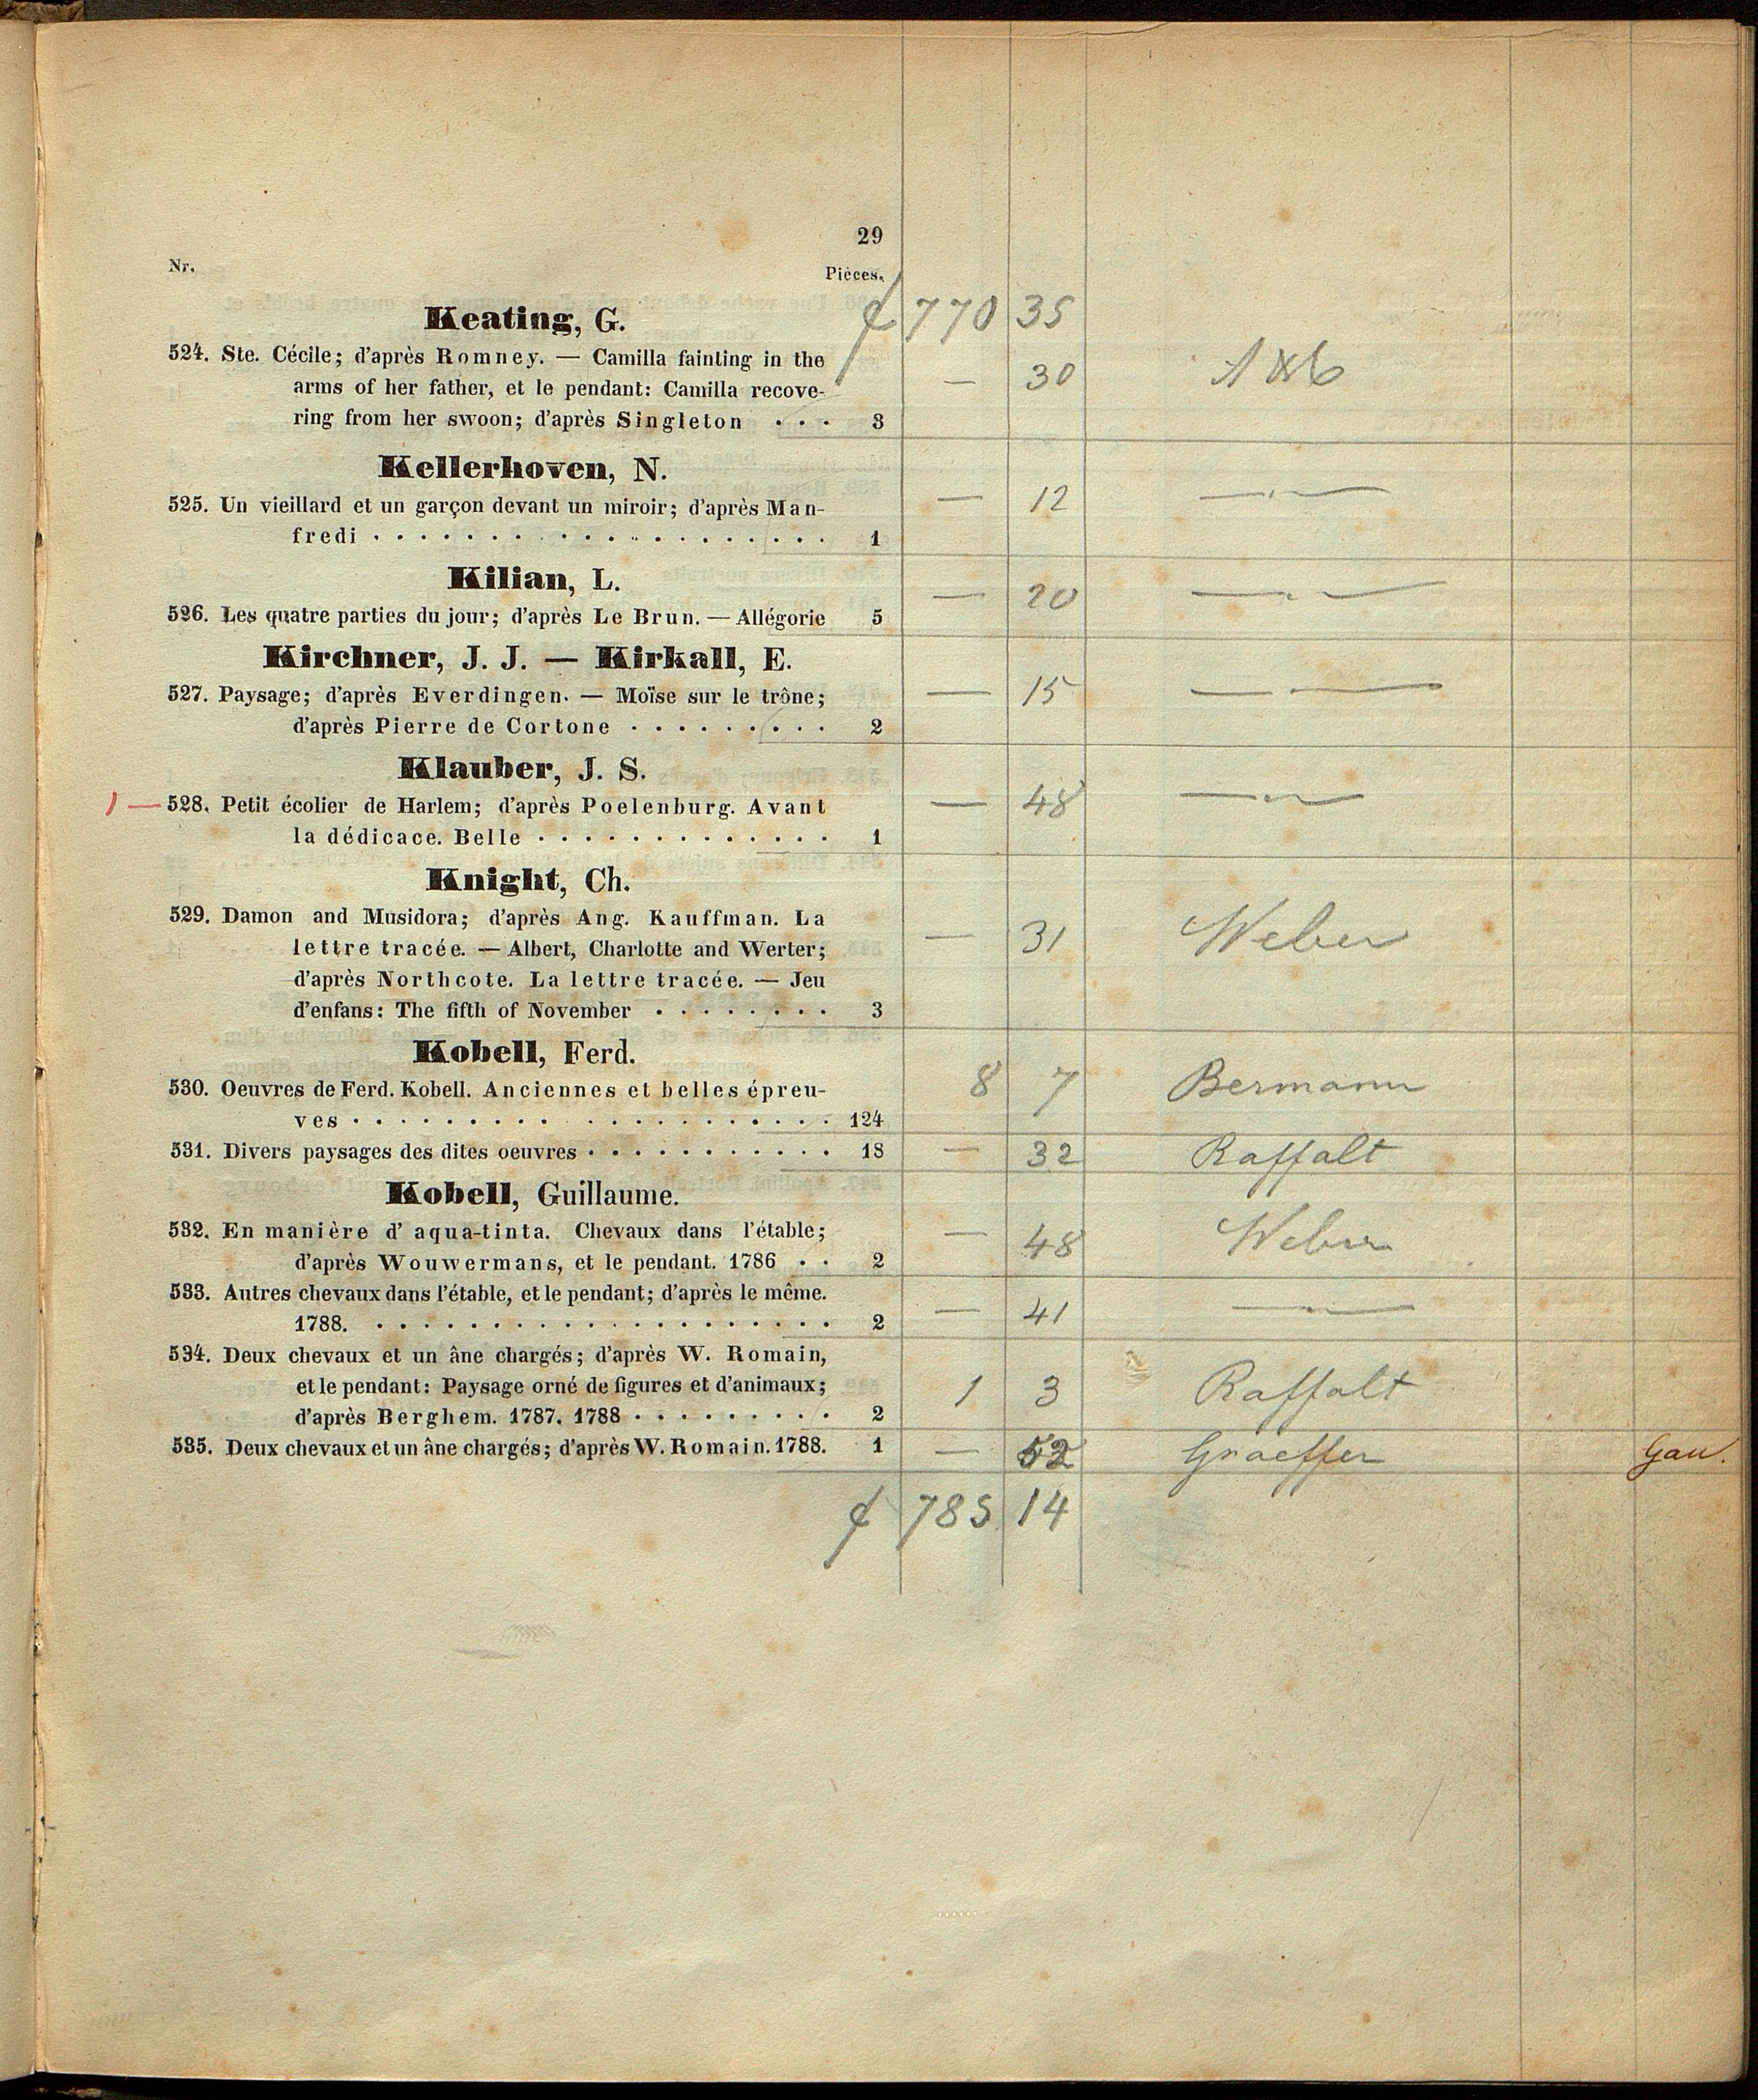 29
Nr. Pièces.
Keating, G. 770 35
524. Ste. Cécile; d'après Romney. — Camilla fainting in the
arms of her father, et le pendant: Camilla recove- — 30
ring from her swoon; d'après Singleton . . . 3
Kellerhoven, N.
525. Un vieillard et un garçon devant un miroir; d'après Man- — 12 — " —
fredi . . . . . . . . . . . . . . . . . . . . 1
Kilian, L.
526. Les quatre parties du jour; d'après Le Brun. — Allégorie 5 — 20 — " —
Kirchner, J. J. — Kirkall, E.
527. Paysage; d'après Everdingen. — Moïse sur le trône; — 15 — —
d'après Pierre de Cortone . . . . . . . . . 2
Klauber, J. S.
1 — 528. Petit écolier de Harlem; d'après Poelenburg. Avant — 48 — " —
la dédicace. Belle . . . . . . . . . . . . . 1
Knight, Ch.
529. Damon and Musidora; d'après Ang. Kauffman. La
lettre tracée. — Albert, Charlotte and Werter; — 31 Weber
d'après Northcote. La lettre tracée. — Jeu
d'enfans: The fifth of November . . . . . . . . 3
Kobell, Ferd.
530. Oeuvres de Ferd. Kobell. Anciennes et belles épreu- 8 7 Bermann
ves . . . . . . . . . . . . . . . . . . . . 124
531. Divers paysages des dites oeuvres . . . . . . . . . . . 18 — 32 Raffalt
Kobell, Guillaume.
532. En manière d' aqua-tinta. Chevaux dans l'étable; — 48 Weber
d'après Wouwermans, et le pendant. 1786 . . 2
533. Autres chevaux dans l'étable, et le pendant; d'après le même. — 41 — " —
1788. . . . . . . . . . . . . . . . . . . . . 2
534. Deux chevaux et un âne chargés; d'après W. Romain,
et le pendant: Paysage orné de figures et d'animaux; 1 3 Raffalt
d'après Berghem. 1787. 1788 . . . . . . . . . 2
535. Deux chevaux et un âne chargés; d'après W. Romain. 1788. 1 — 52 Graeffer Gau.
785 14